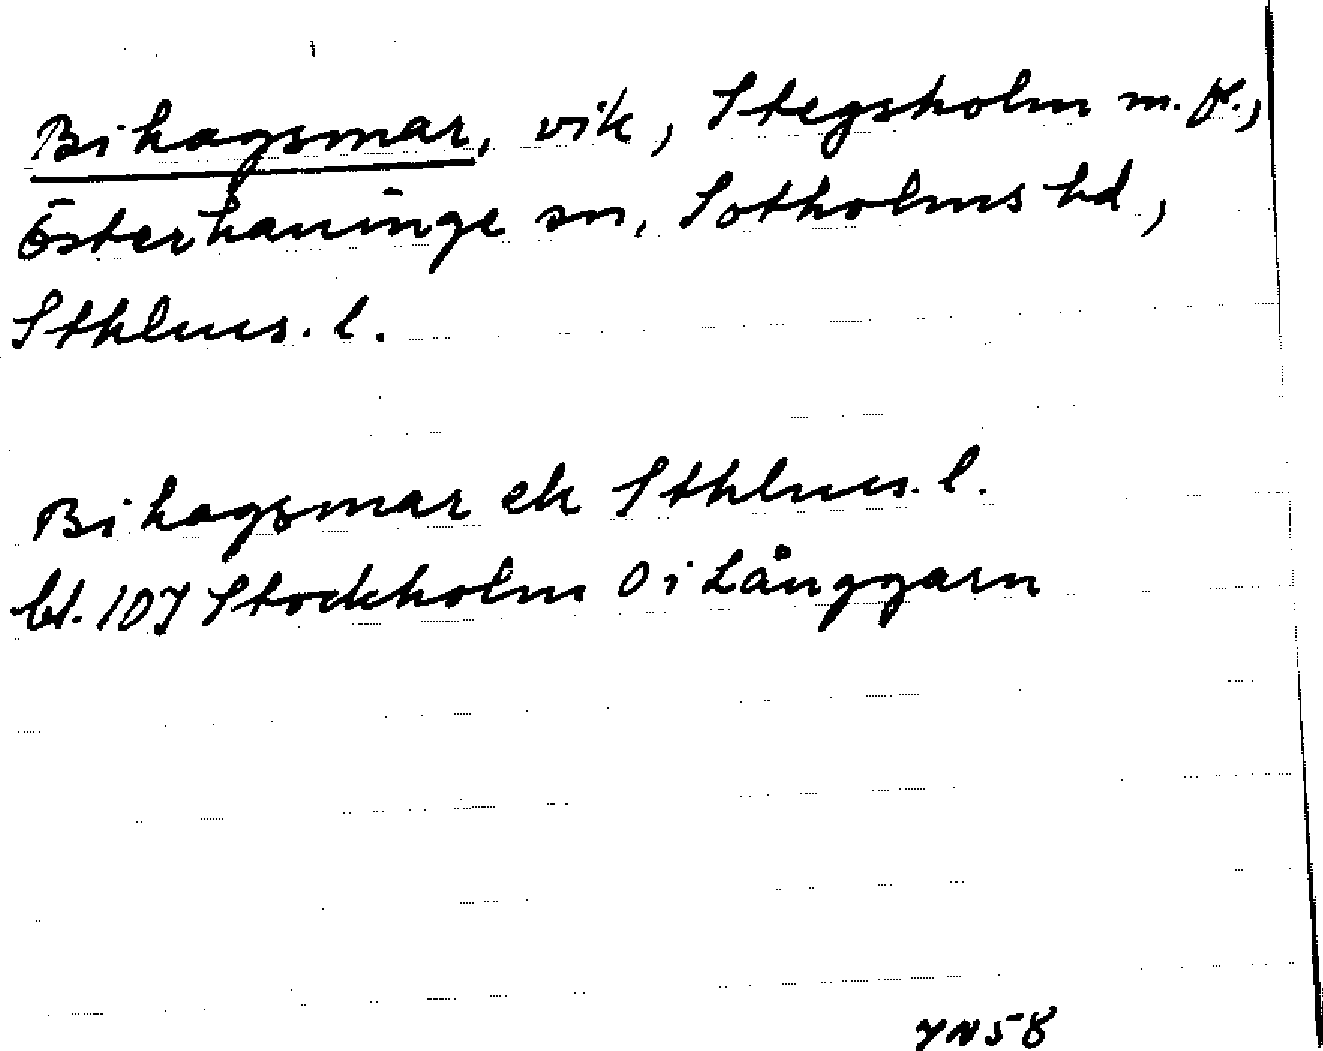 Bihagsmar, vik, Stegsholm m. fl.,
Österhaninge sn, Sotholms hd,
Sthlms. l.
Bihagsmar ek Sthlms. l.
bl. 107 Stockholm O i Långgarn
YN58